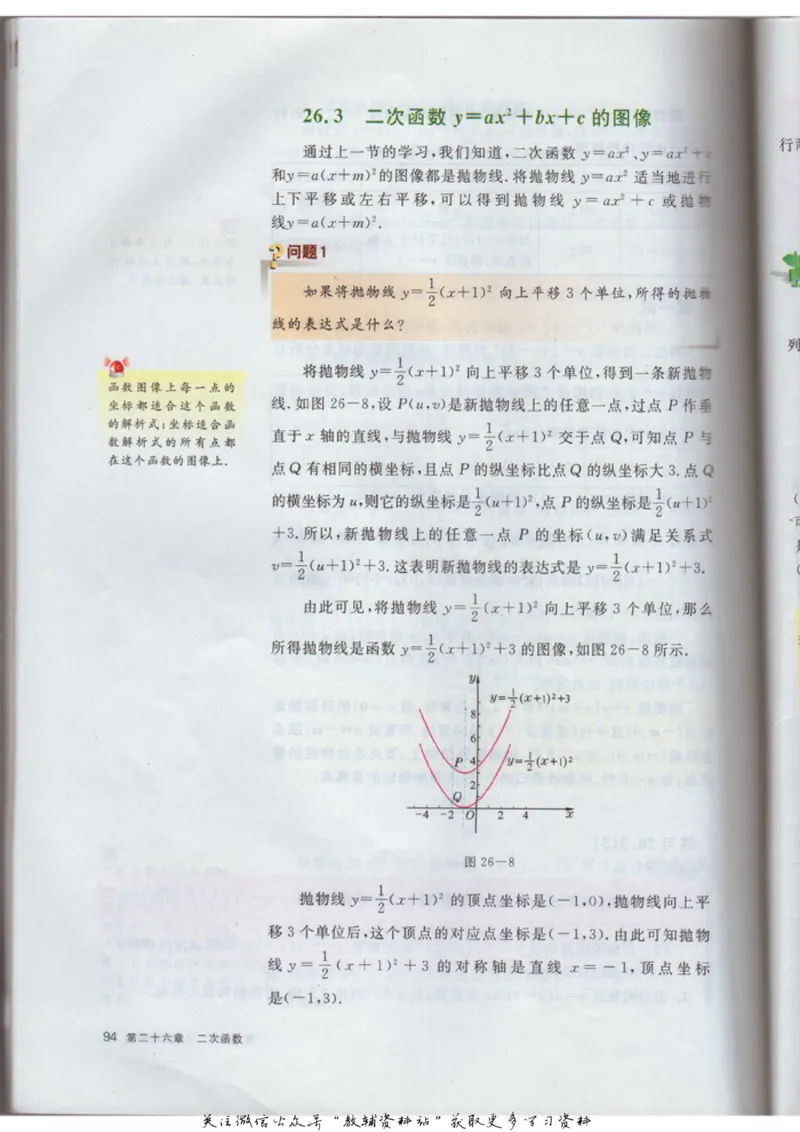 26.3 二次函数 y=ax²+bx+c 的图像
通过上一节的学习,我们知道,二次函数 y=ax²、y=ax²+c
和y=a(x+m)²的图像都是抛物线.将抛物线 y=ax² 适当地进行
上下平移或左右平移,可以得到抛物线 y=ax²+c 或抛物
线y=a(x+m)².
问题1
如果将抛物线 y=1/2(x+1)² 向上平移 3 个单位,所得的抛物
线的表达式是什么?
将抛物线 y=1/2(x+1)² 向上平移 3 个单位,得到一条新抛物
线.如图 26-8,设 P(u,v)是新抛物线上的任意一点,过点 P 作垂
直于 x 轴的直线,与抛物线 y=1/2(x+1)² 交于点 Q,可知点 P 与
点 Q 有相同的横坐标,且点 P 的纵坐标比点 Q 的纵坐标大 3.点 Q
的横坐标为 u,则它的纵坐标是1/2(u+1)²,点 P 的纵坐标是1/2(u+1)²
+3.所以,新抛物线上的任意一点 P 的坐标(u,v)满足关系式
v=1/2(u+1)²+3.这表明新抛物线的表达式是 y=1/2(x+1)²+3.
由此可见,将抛物线 y=1/2(x+1)² 向上平移 3 个单位,那么
所得抛物线是函数 y=1/2(x+1)²+3 的图像,如图 26-8 所示.
函数图像上每一点的
坐标都适合这个函数
的解析式;坐标适合函
数解析式的所有点都
在这个函数的图像上.
y
y=1/2(x+1)²+3
8
6
P 4 y=1/2(x+1)²
2
Q
-4 -2 O 2 4 x
图 26-8
抛物线 y=1/2(x+1)² 的顶点坐标是(-1,0),抛物线向上平
移 3 个单位后,这个顶点的对应点坐标是(-1,3).由此可知抛物
线 y=1/2(x+1)²+3 的对称轴是直线 x=-1,顶点坐标
是(-1,3).
94 第二十六章 二次函数
行两
列
关注微信公众号"教辅资料站"获取更多学习资料